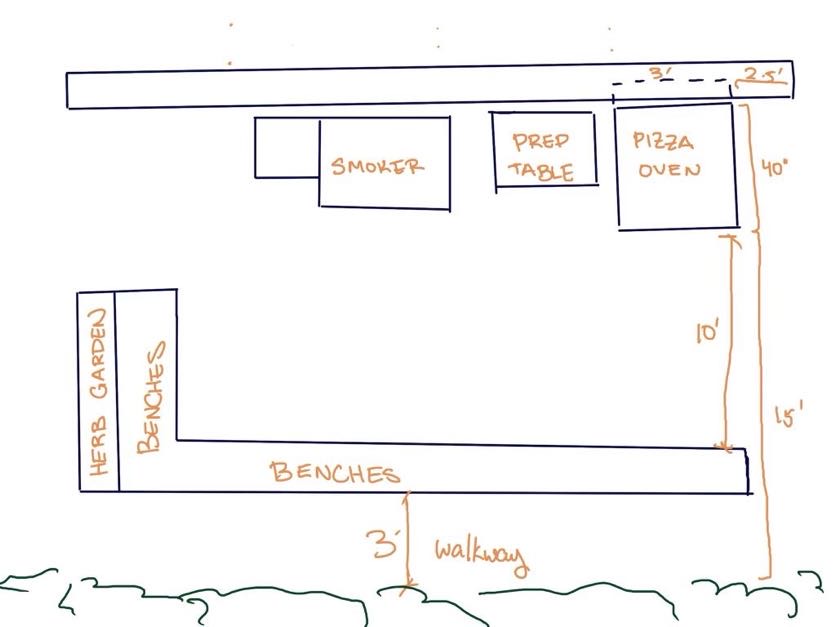 3'
2.5'
SMOKER
PREP
TABLE
PIZZA
OVEN
40"
10'
15'
HERB GARDEN
BENCHES
BENCHES
3'
walkway